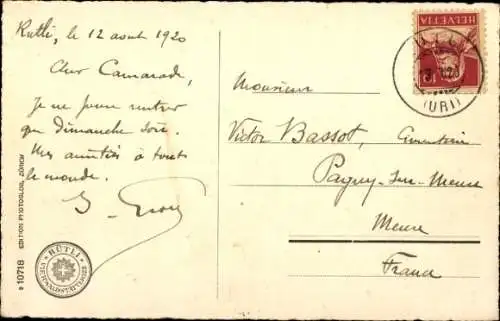 Rutli, le 12 aout 1920
Cher Camarade,
Je ne puis rentrer
que dimanche soir
Mes amitiés à tous
le monde.
HELVETIA
10
(URI)
Monsieur
Victor Bassot,
Pagny-sur-Meuse
Meuse
France
B 10718 EDITION PHOTOGLOB, ZÜRICH
RÜTLI
VIERWALDSTÄTTERSEE